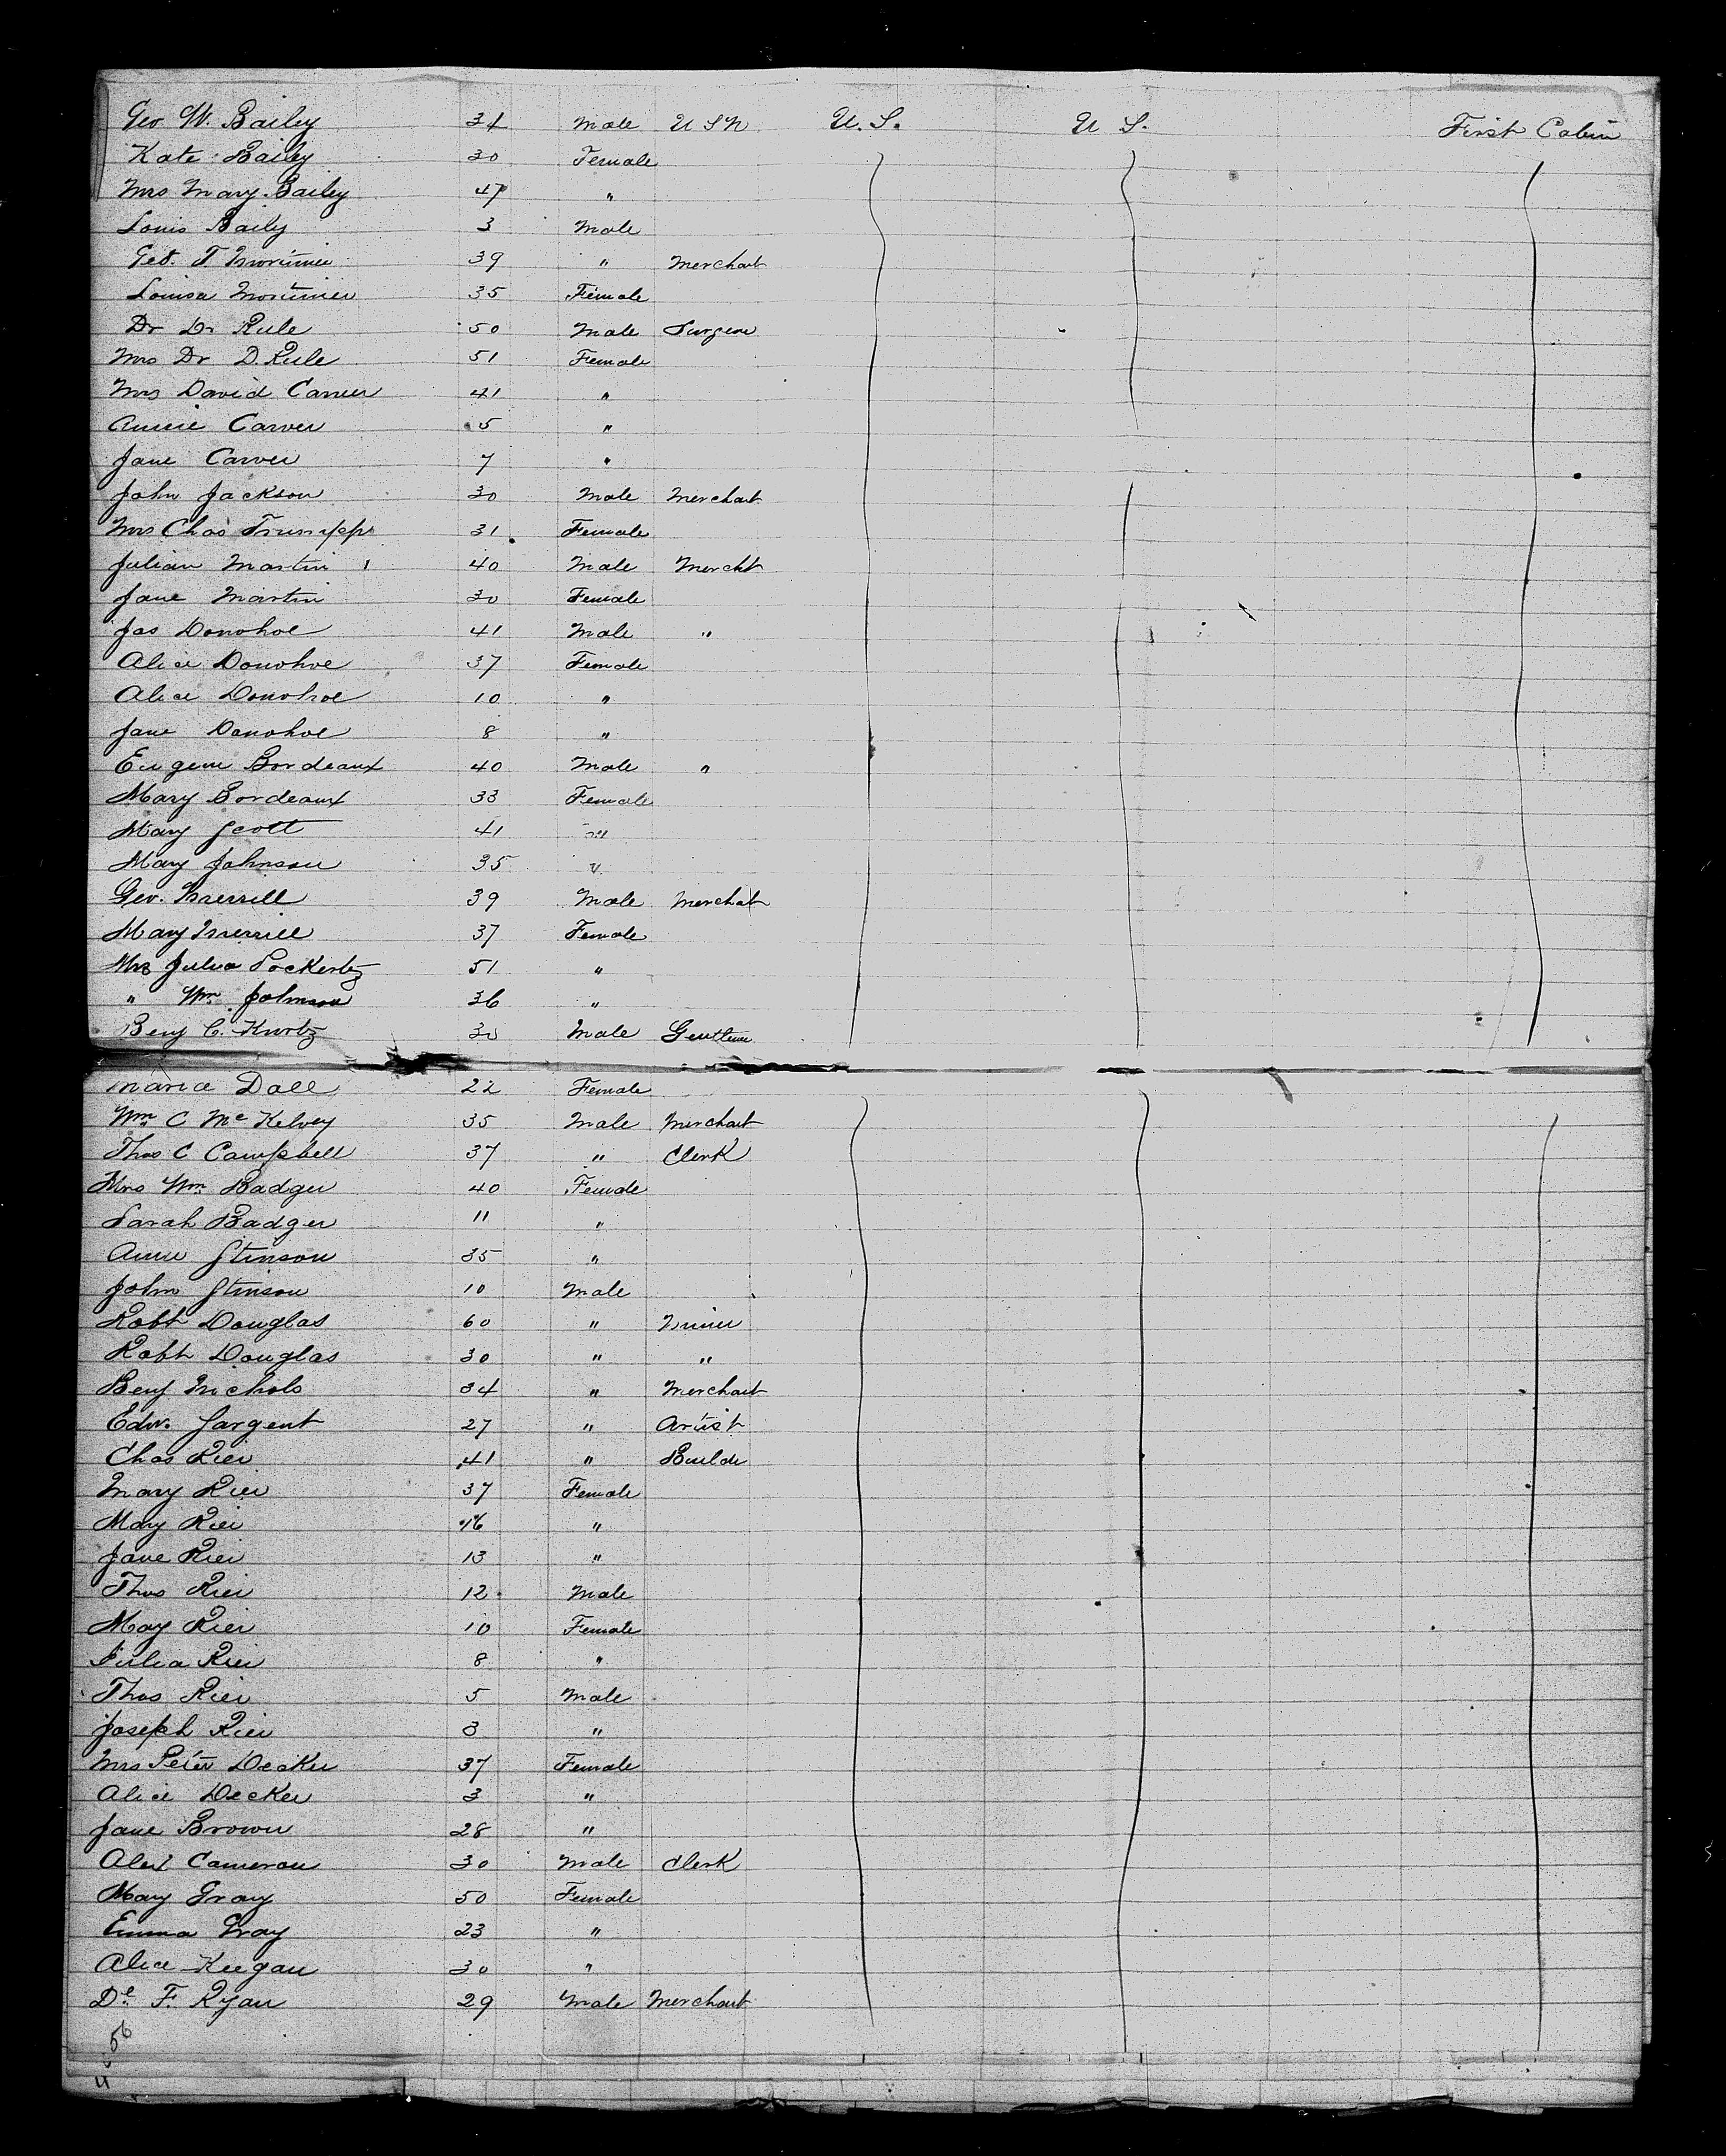 Geo W. Bailey 34 Male U S N U. S. U S. First Cabin
Kate Bailey 30 Female
Mrs Mary Bailey 47 "
Louis Baily 3 Male
Geo. T. Mortimer 39 " Merchant
Louisa Mortimer 35 Female
Dr Dr Rule 50 Male Surgeon
Mrs Dr D. Rule 51 Female
Mrs David Carver 41 "
Annie Carver 5 "
Jane Carver 7 "
John Jackson 30 Male Merchant
Mrs Chas Trumpp 31 Female
Julian Martin 40 Male Mercht
Jane Martin 30 Female
Jas Donohoe 41 Male "
Alice Donohoe 37 Female
Alice Donohoe 10 "
Jane Donohoe 8 "
Eugene Bordeaux 40 Male "
Mary Bordeaux 33 Female
Mary Scott 41 "
Mary Johnson 35 "
Geo. Merrill 39 Male Merchat
Mary Merrill 37 Female
Mrs Julia 51 "
" Wm Johnson 36 "
Benj C. Kurtz 30 Male Gentleman
Maria Dall 22 Female
Wm C McKelvey 35 Male Merchant
Thos C Campbell 37 " Clerk
Mrs Wm Badger 40 Female
Sarah Badger 11 "
Annie Stinson 35 "
John Stinson 10 Male
Robt Douglas 60 " Miner
Robt Douglas 30 " "
Benj Nichols 34 " Merchant
Edw. Sargent 27 " Artist
Chas Rier 41 " Builder
Mary Rier 37 Female
Mary Rier 16 "
Jane Rier 13 "
Thos Rier 12 Male
May Rier 10 Female
Julia Rier 8 "
Thos Rier 5 Male
Joseph Rier 3 "
Mrs Peter Decker 37 Female
Alice Decker 3 "
Jane Brown 28 "
Alex Cameron 30 Male Clerk
Mary Gray 50 Female
Emma Gray 23 "
Alice Keegan 30 "
De F. Ryan 29 Male Merchant
56